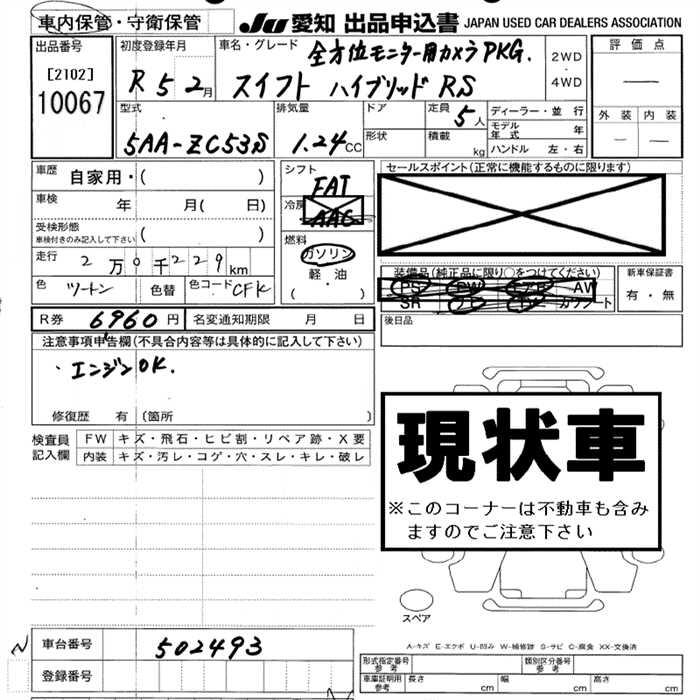 車内保管・守衛保管
JU 愛知 出品申込書 JAPAN USED CAR DEALERS ASSOCIATION
出品番号
[2102]
10067
初度登録年月
R 5 2月
車名・グレード
全方位モニター用カメラPKG.
スイフト ハイブリッド RS
2WD
・
4WD
評価点
—
外装 内装
— —
型式
5AA-ZC53S
排気量
1.24CC
ドア
形状
定員
5人
積載
kg
ディーラー・並行
モデル年式 年
ハンドル 左・右
車歴
自家用・( )
車検
年 月( 日)
受検形態
車検付きのみ記入して下さい
( )
走行
2万0千229km
色 ツートン 色替 色コード CFK
シフト
FAT
冷房
AAC
燃料
ガソリン
軽・油
( ・ )
セールスポイント(正常に機能するものに限ります)
装備品(純正品に限り○をつけてください)
PS PW エアB AW
SR ナビ カワシート
新車保証書
有・無
後日品
R券 6960円 名変通知期限 月 日
注意事項申告欄(不具合内容等は具体的に記入して下さい)
・エンジンOK.
修復歴 有 (箇所 )
検査員記入欄
FW キズ・飛石・ヒビ割・リペア跡・X要
内装 キズ・汚レ・コゲ・穴・スレ・キレ・破レ
現状車
※このコーナーは不動車も含み
ますのでご注意下さい
スペア
A-キズ E-エクボ U-凹み W-補修跡 S-サビ C-腐食 XX-交換済
車台番号 502493
登録番号
形式指定番号
参考
類別区分番号
参考
車庫証明用
参考
長さ cm 幅 cm 高さ cm